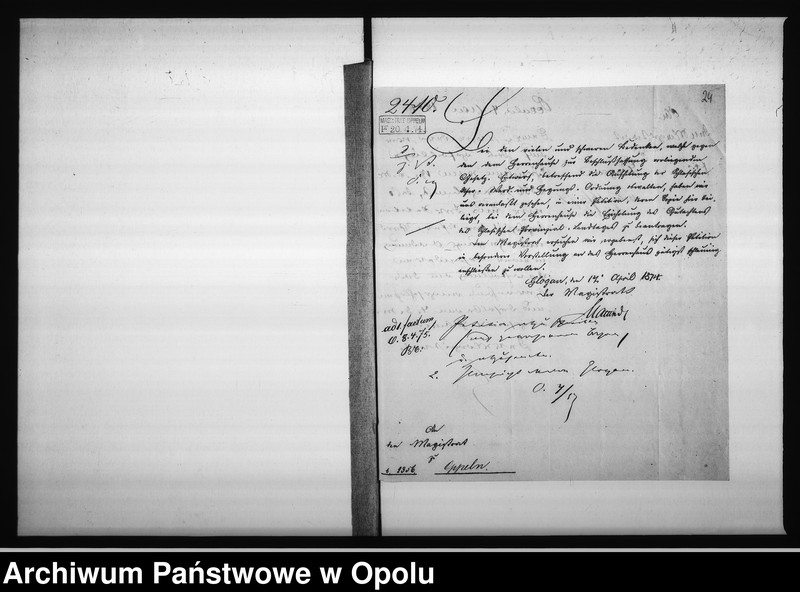 24
2410.
MAGISTRAT OPPELN
Pr 20.4.74
Bei den vielen und schweren Bedenken, welche gegen
den dem Herrenhause zur Beschlußfassung vorliegenden
Gesetz-Entwurf, betreffend die Aufhebung der Schlesischen
und Hegungs-Ordnung obwalten, haben wir
uns veranlaßt gesehen, in einer Petition, deren Copie hier bei-
liegt, bei dem Herrenhause die Einholung des Gutachtens
des Schlesischen Provinzial-Landtages zu beantragen.
Den Magistrat ersuchen wir ergebenst, sich dieser Petition
in besonderer Vorstellung an das Herrenhaus gütigst
anschließen zu wollen.
Glogau, den 17. April 1874.
Der Magistrat
ad
O. 8.4.75.
Petition
2. Glogau.
O.
An
den Magistrat
zu
Oppeln.
1356
Archiwum Państwowe w Opolu